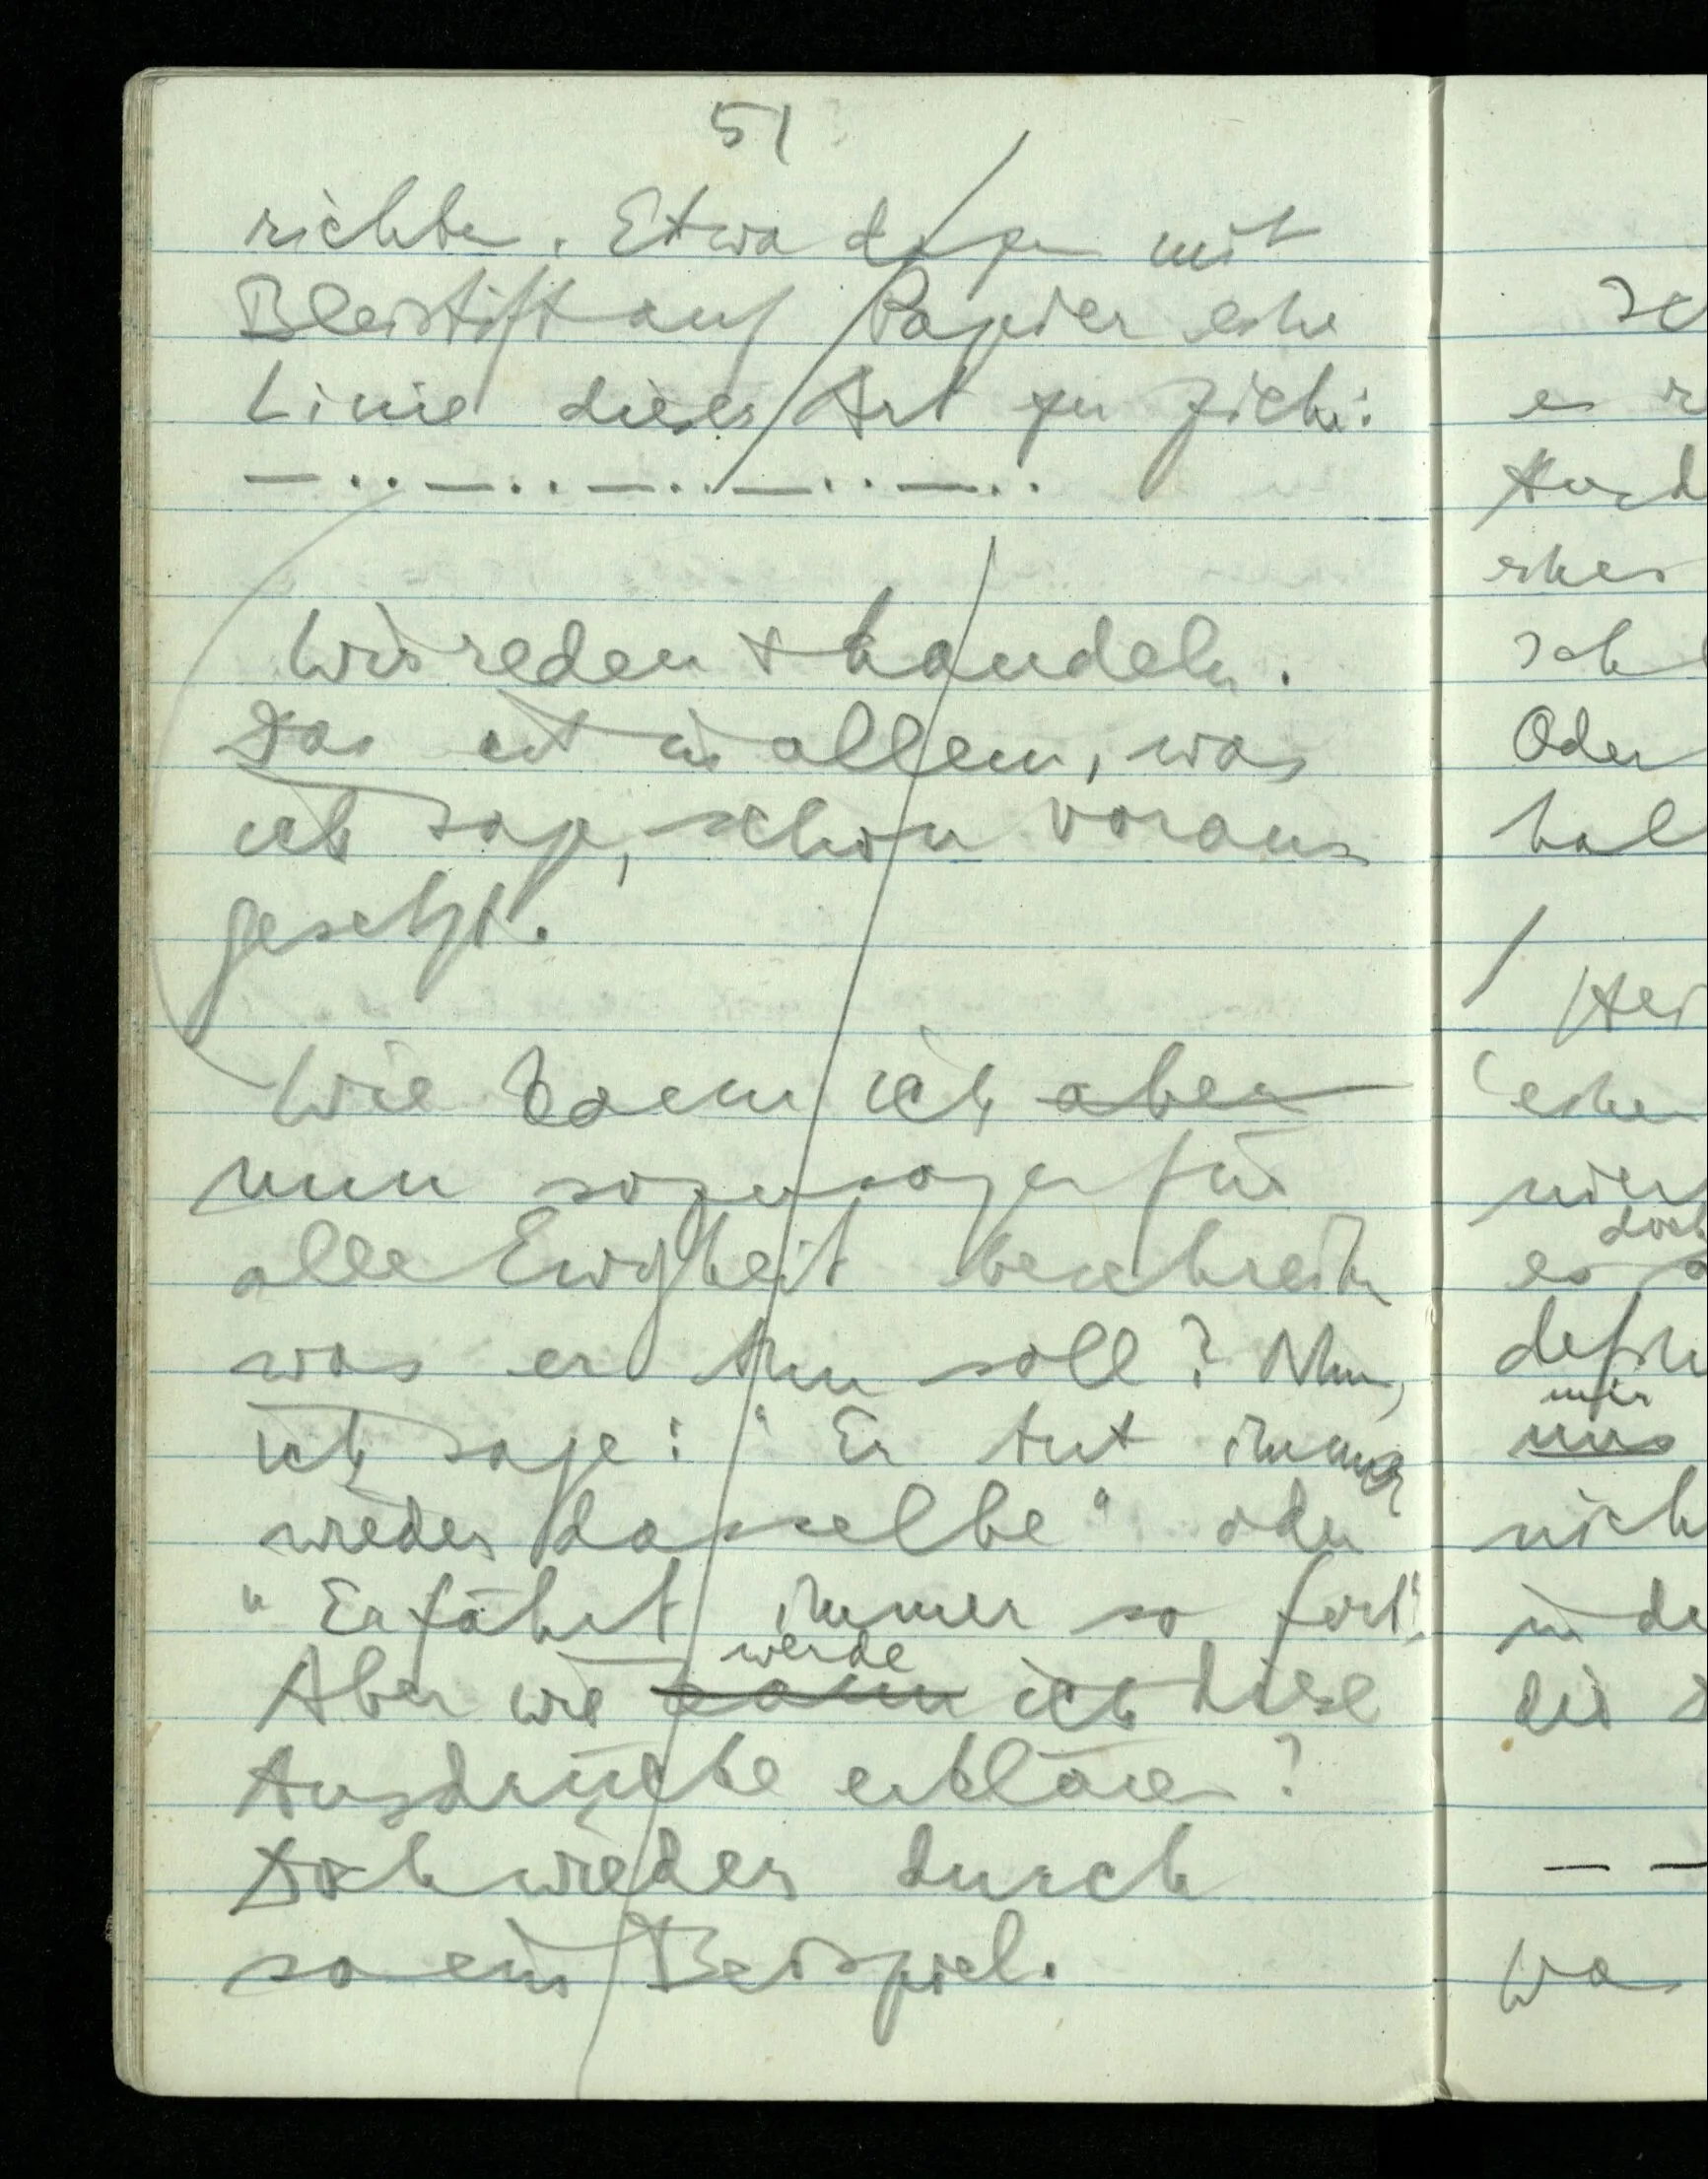 51
richten. Etwa dazu mit
Bleistift auf Papier eine
Linie dieser Art zu ziehn:
— . . — . . — . . — . . — . .
Wir reden & handeln.
Das ist in allem, was
ich sage, schon voraus
gesetzt.
Wie kann ich aber
nun sozusagen für
alle Ewigkeit beschreiben
was er tun soll? Nun,
ich sage: "Er tut immer
wieder dasselbe" oder
"Er fährt immer so fort".
werde
Aber wie kann ich diese
Ausdrücke erklären?
Doch wieder durch
so ein Beispiel.
e
Oder
es
doch
mir
uns
— —